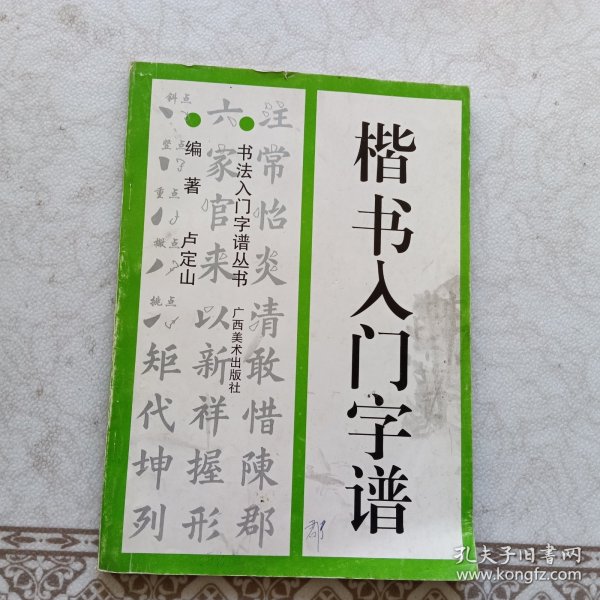 楷书入门字谱
书法入门字谱丛书
广西美术出版社
编著 卢定山
注常怡炎清敢惜陳郡
六家官来以新祥握形
斜点
竖点
重点
撇点
挑点
矩代坤列
郡
孔夫子旧书网
www.kongfz.com